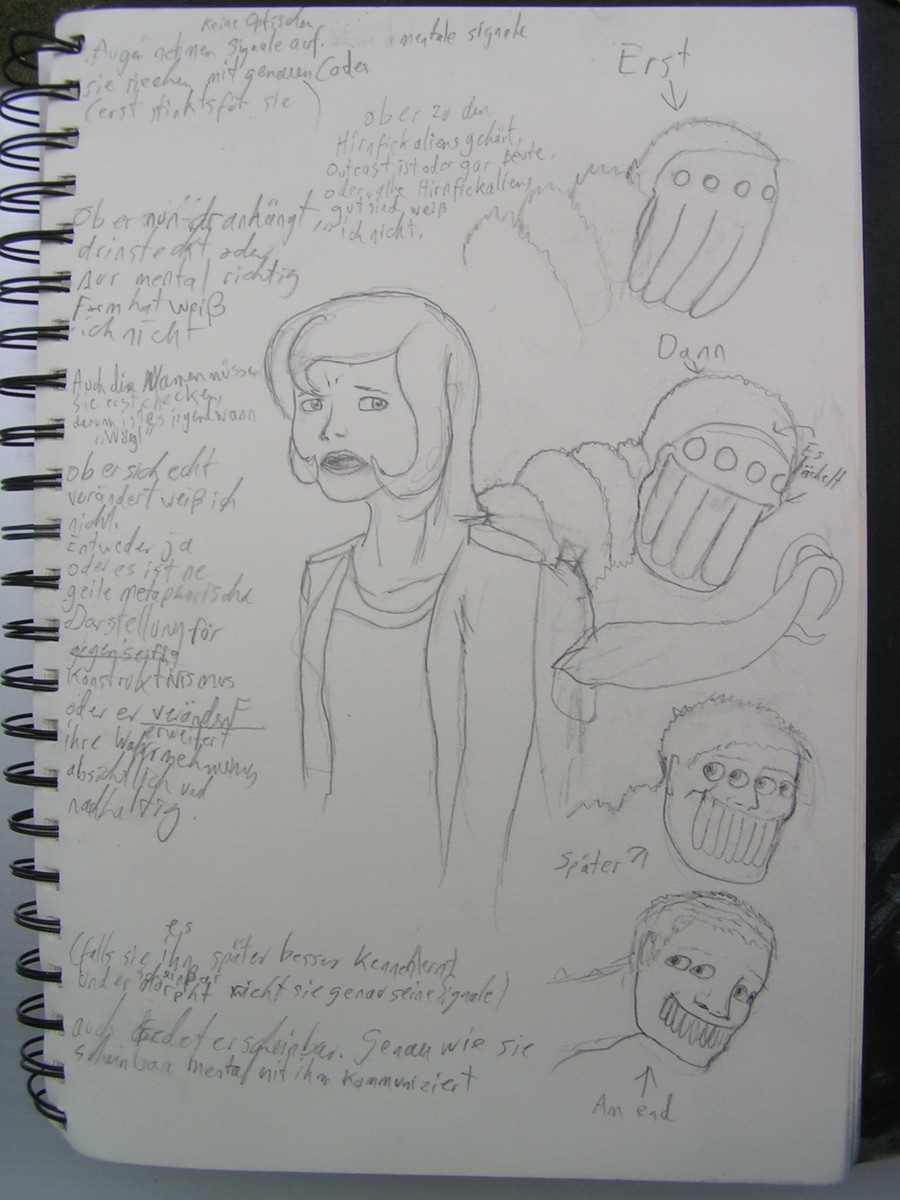 keine Optischen
Augen nehmen Signale auf.
mentale signale
sie riechen mit genauen Codes
(erst stinkts für sie
Erst
ob er zu den
Hirnfickaliens gehört,
Outcast ist oder gar Beute.
oder alle Hirnfickaliens
gut sind weiß
ich nicht.
Ob er nun dranhängt,
drinsteckt oder
nur mental richtig
Form hat weiß
ich nicht
Dann
Auch die Namen müssen
sie erst checken,
darum ist es irgendwann
Es
lächelt
ob er sich echt
verändert weiß ich
nicht.
Entweder ja
oder es ist ne
geile metaphorische
Darstellung für
gegenseitig
Konstruktivismus
oder er verändert
erweitert
ihre Wahrnehmung
absichtlich und
nachhaltig.
Später
es
(falls sie ihn später besser kennenlernt
scheinbar
und er morpht riecht sie genau seine Signale)
auch redet er scheinbar. Genau wie sie
scheinbar mental mit ihm kommuniziert
Am end